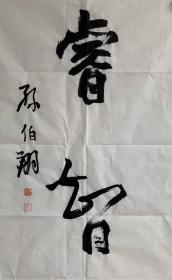 睿智
孙伯翔